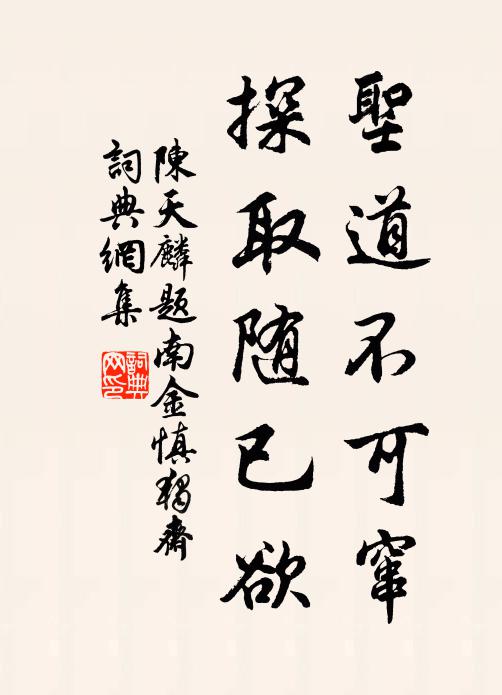 聖道不可窜
探取随已欲
陳天麟题南金慎獨齋
詞典網集
詞典网印